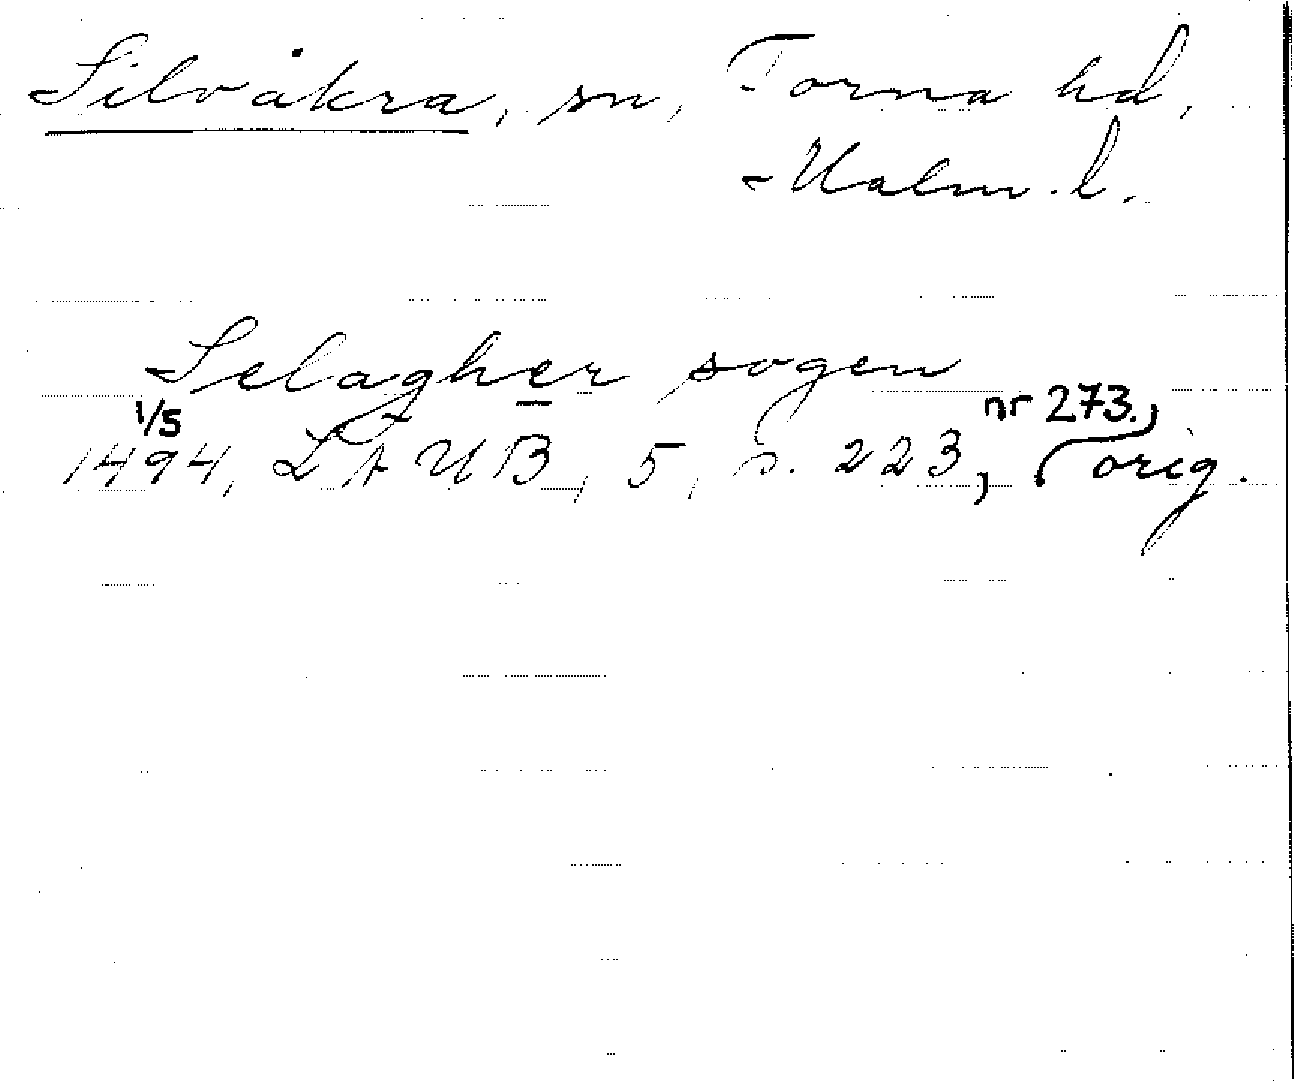 Silvåkra, sn, Torna hd,
Malm. l.
Selagher sogen
1/5 nr 273.
1494, LÄUB, 5, s. 223, orig.